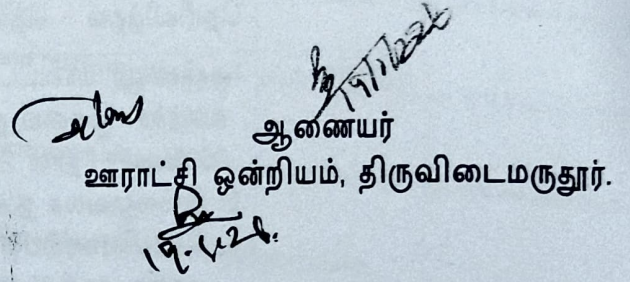 19/1/2026
ஆணையர்
ஊராட்சி ஒன்றியம், திருவிடைமருதூர்.